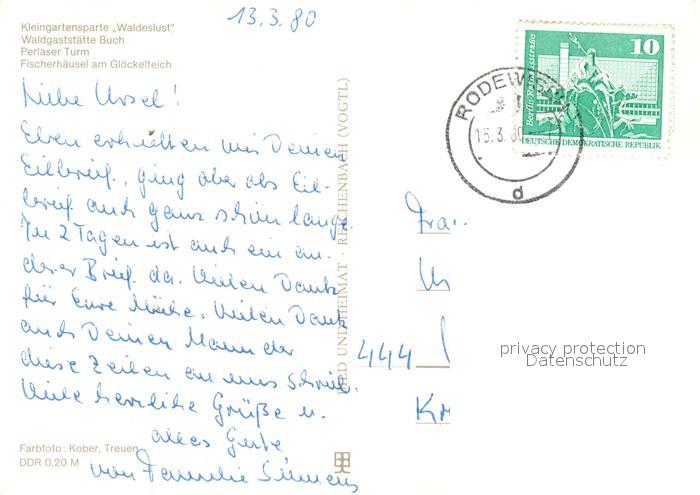 13.3.80
Kleingartensparte „Waldeslust"
Waldgaststätte Buch
Perlaser Turm
Fischerhäusel am Glöckelteich
Liebe Ursel!
Eben erhielten wir Deinen
Eilbrief, ging aber als Eil-
brief auch ganz schön lange.
In 2 Tagen ist auch ein an-
derer Brief da. Vielen Dank
für Eure Mühe. Vielen Dank
auch Deinen Mann der
diese Zeilen an uns schrieb.
Viele herzliche Grüße u.
alles Gute
von Familie
Farbfoto: Kober, Treuen
DDR 0,20 M
BILD UND HEIMAT · REICHENBACH (VOGTL)
10
Berlin-Rathausstraße
DEUTSCHE DEMOKRATISCHE REPUBLIK
RODEWISCH
15.3.80
d
Frau
444
Kr
privacy protection
Datenschutz